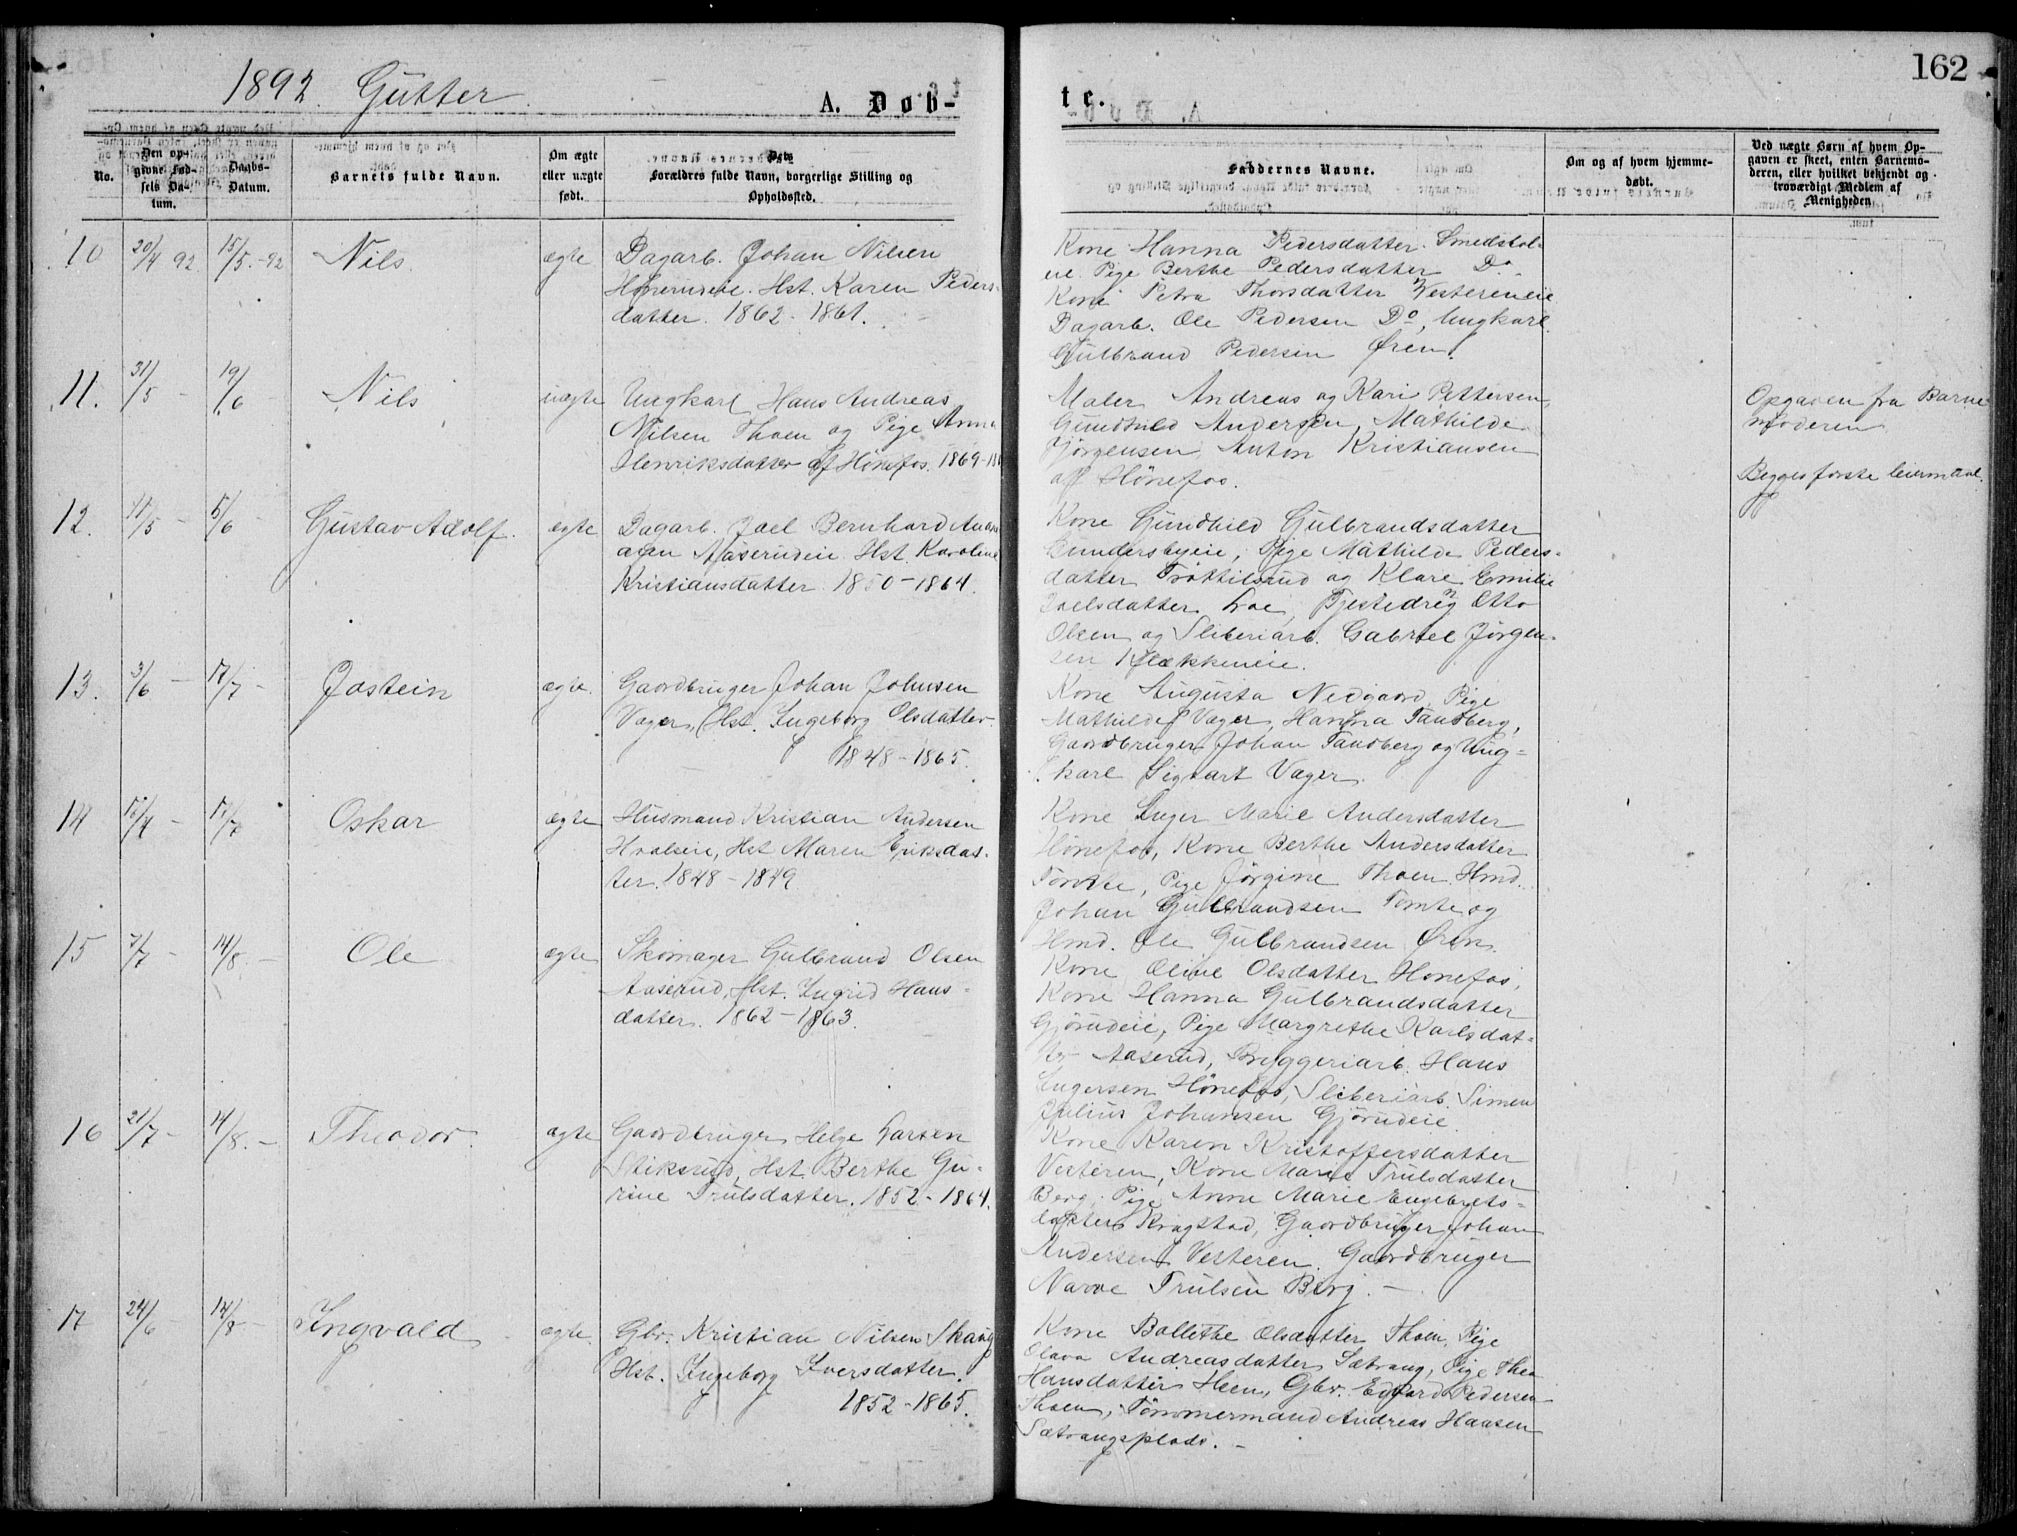 162
1892. Gutter.
A. Døb-
te.
No.
Den op-
givne Fød-
sels Da-
tum.
Daabs-
Datum.
Barnets fulde Navn.
Om ægte
eller uægte
født.
Forældres fulde Navn, borgerlige Stilling og
Opholdssted.
Faddernes Navne.
Om og af hvem hjemme-
døbt.
Ved uægte Børn af hvem Op-
gaven er skeet, enten Barnemo-
deren, eller hvilket bekjendt og
troværdigt Medlem af
Menigheden
10 20/4 92. 15/5 -92 Nils. ægte
Dagarb. Johan Nilsen
Hønerudeie. Hst. Karen Peders-
datter. 1862 - 1861.
Kone Hanna Pedersdatter Smedstol-
eie. Pige Berthe Pedersdatter Do.
Kone Petra Thorsdatter Vestereneie
Dagarb. Ole Pedersen Do, Ungkarl
Gulbrand Pedersen Øren.
11. 31/5 - 19/6 - Nils uægte
Ungkarl Hans Andreas
Nilsen Thoen og Pige Anna
Henriksdatter af Hönefos. 1869-
Maler Andreas og Kari Pettersen,
Gundhild Andersen, Mathilde
Jörgensen, Anton Kristiansen
af Hönefos.
Opgaven fra Barne
moderen
Begges første leiermaal.
12. 11/5 - 5/6 - Gustav Adolf. ægte
Dagarb. Joel Bernhard
Aaserudeie Hst. Karoline
Kristiansdatter 1850 - 1864.
Kone Gundhild Gulbrandsdatter
Bundersbyeie, Pige Mathilde Peders-
datter Trøttilsrud og Klare Emilie
Joelsdatter Loe, Otto
Olsen og Sliberiarb. Gabriel Jørgen-
sen Klækkeneie.
13. 3/6 - 17/7 - Jostein ægte.
Gaardbruger Johan Johnsen
Vager, Hst. Ingeborg Olsdatter
1848 - 1865.
Kone Augusta Nedgaard, Pige
Mathilde Vager, Hanna Tandberg,
Gaardbruger Johan Tandberg og Ung-
karl Sigvart Vager.
14 /4 - 17/7 Oskar ægte
Husmand Kristian Andersen
Hvalseie, Hst Maren Eriksdat-
ter. 1848 - 1849
Kone Inger Marie Andersdatter
Hönefos, Kone Berthe Andersdatter
Tomte, Pige Jørgine Thoen Hmd.
Johan Gulbrandsen Tomte og
Hmd. Ole Gulbrandsen Øren.
15 7/7 - 14/8. - Ole ægte
Skomager Gulbrand Olsen
Aaserud, Hst. Ingrid Hans-
datter. 1862 - 1863.
Kone Oline Olsdatter Hønefos,
Kone Hanna Gulbrandsdatter
Gjörudeie, Pige Margrethe Karlsdat-
ter Aaserud, Bryggeriarb. Hans
Engersen Hönefos, Sliberiarb. Simen
Julius Johansen Gjörudeie
16 21/7 - 14/8. - Theodor. ægte
Gaardbruger Helge Larsen
Stiksrud, Hst. Berthe Gu-
rine Trulsdatter. 1852 - 1864.
Kone Karen Kristoffersdatter
Vesteren, Kone Maren Trulsdatter
Berg, Pige Anne Marie Engebrets-
datter Kragstad, Gaardbruger Johan
Andersen Vesteren. Gaardbruger
Narve Trulsen Berg. -
17 24/6 14/8 - Ingvald ægte.
Gbr. Kristian Nilsen Skaug
Hst. Ingeborg Iversdatter.
1852 - 1865.
Kone Bollette Olsdatter Thoen, Pige
Olava Andreasdatter Sætrang, Pige Thea
Hansdatter Heen, Gbr. Edvard Pedersen
Thoen, Tömmermand Andreas Hansen
Sætrangsplads. -